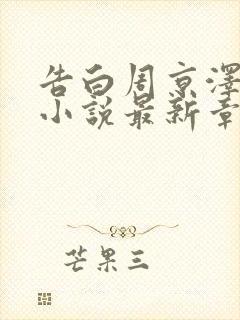 告白周京澤
小說最新章
芒果三